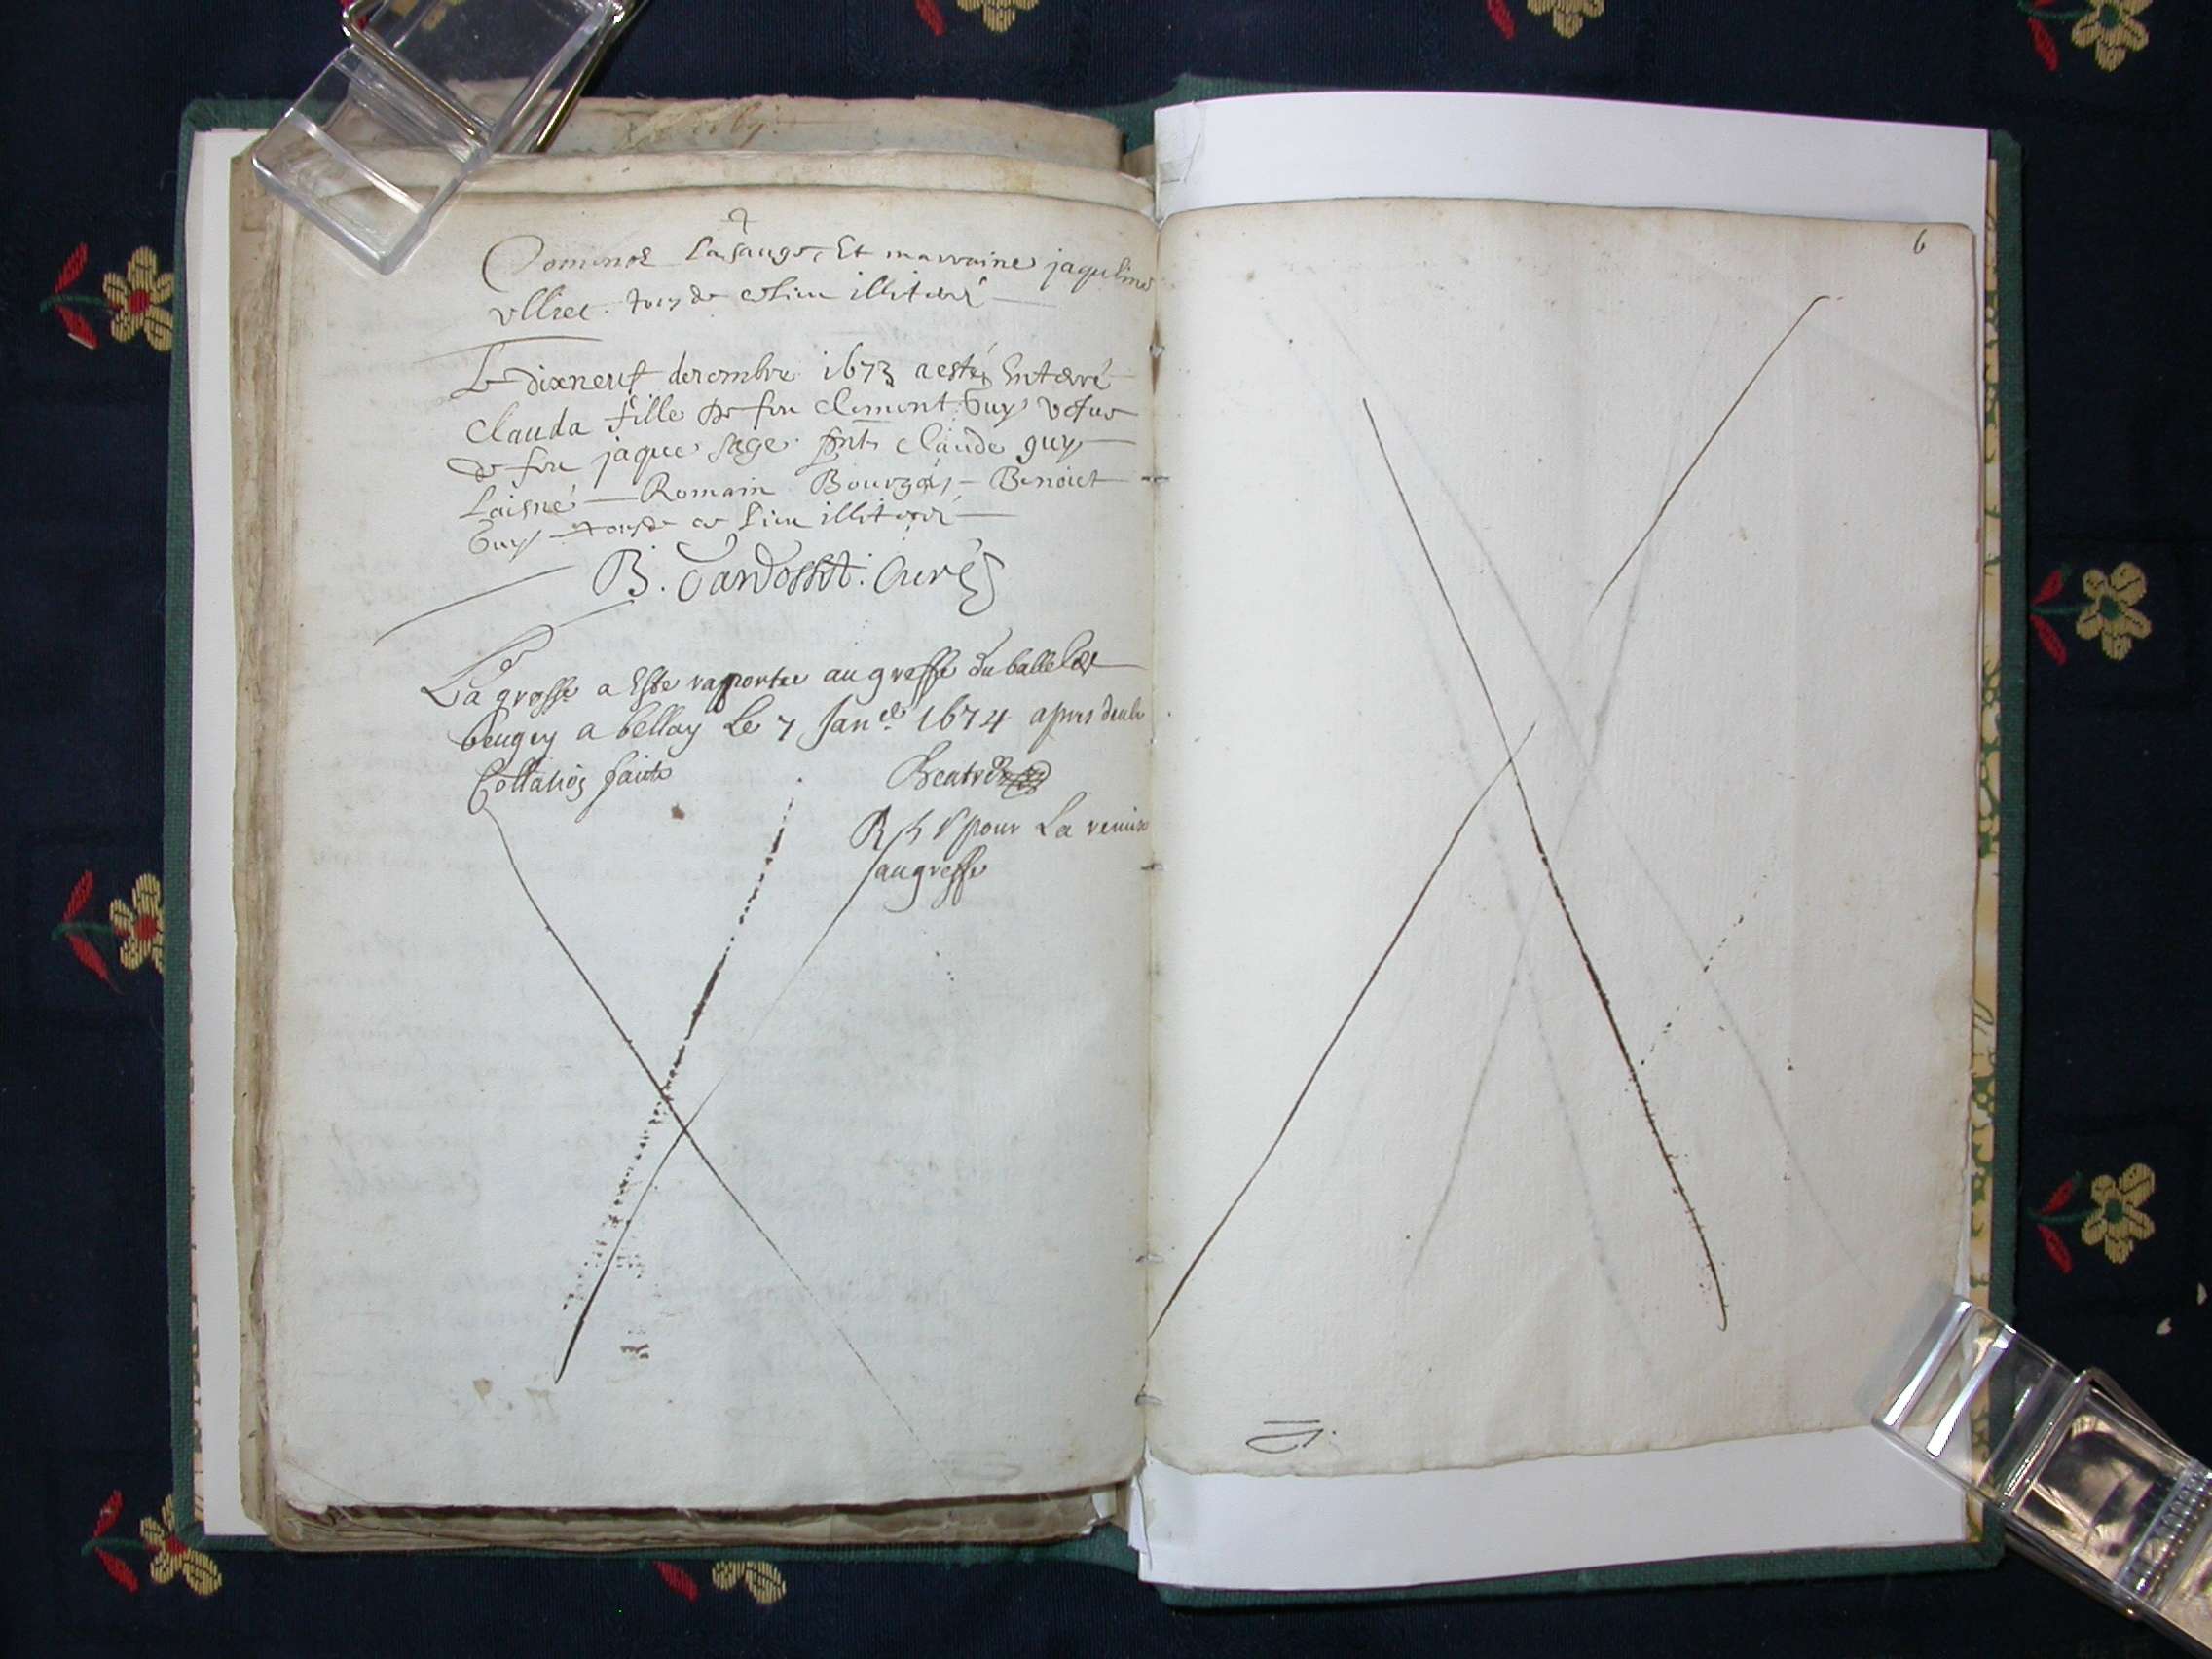 Et marraine jaqueline
ulliet tous de ce lieu illiteré
Le dixneuf decembre 1673 a esté Enterré
Clauda fille de feu Clement Guy vefue
de feu jaque sage pnts claude guy
laisné Romain Bourgois Benoict
Guy tous de ce lieu illiteré
B. Curé
La grosse a Este raportee au greffe du balle de
beugey a bellay Le 7 Jan 1674 apres deube
Collation faicte
R pour La remise
au greffe
6